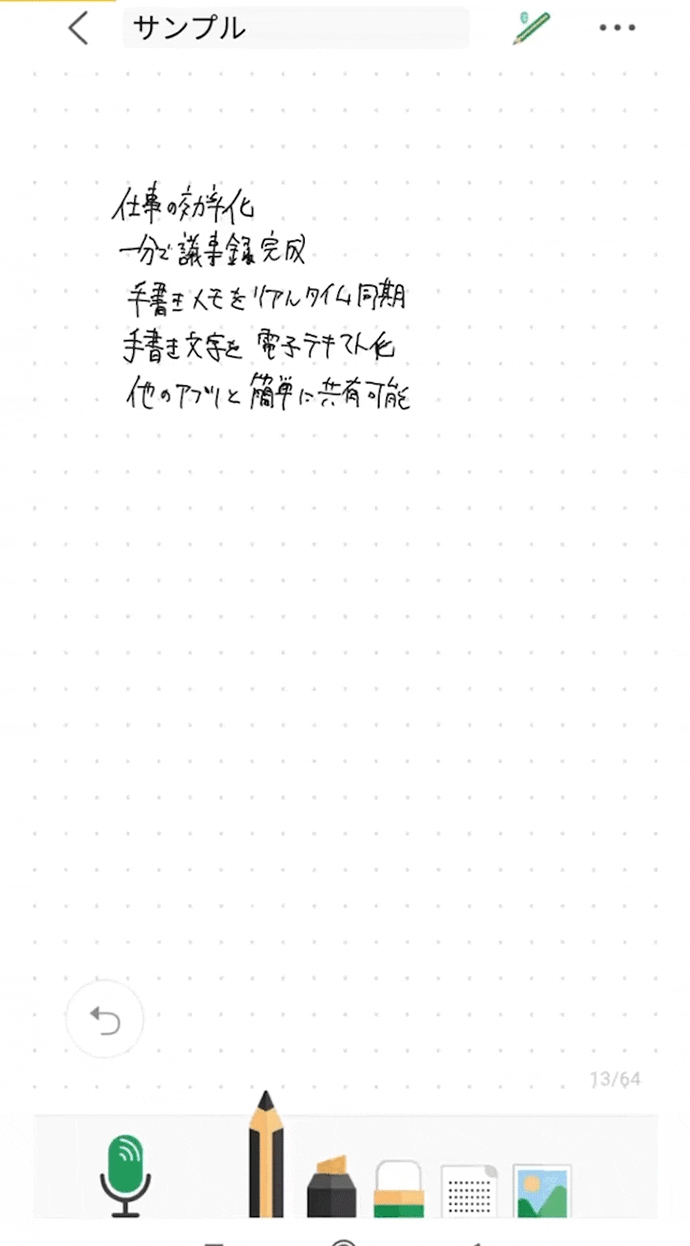 サンプル
仕事の効率化
一分で議事録完成
手書きメモをリアルタイム同期
手書き文字を電子テキスト化
他のアプリと簡単に共有可能
13/64